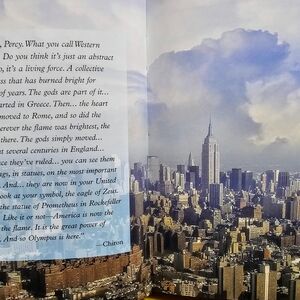 , Percy. What you call Western
Do you think it's just an abstract
o, it's a living force. A collective
ss that has burned bright for
of years. The gods are part of it...
arted in Greece. Then... the heart
moved to Rome, and so did the
erever the flame was brightest, the
there. The gods simply moved...
nt several centuries in England...
ce they've ruled... you can see them
gs, in statues, on the most important
And... they are now in your United
ook at your symbol, the eagle of Zeus.
he statue of Prometheus in Rockefeller
Like it or not—America is now the
the flame. It is the great power of
. And so Olympus is here."
—Chiron